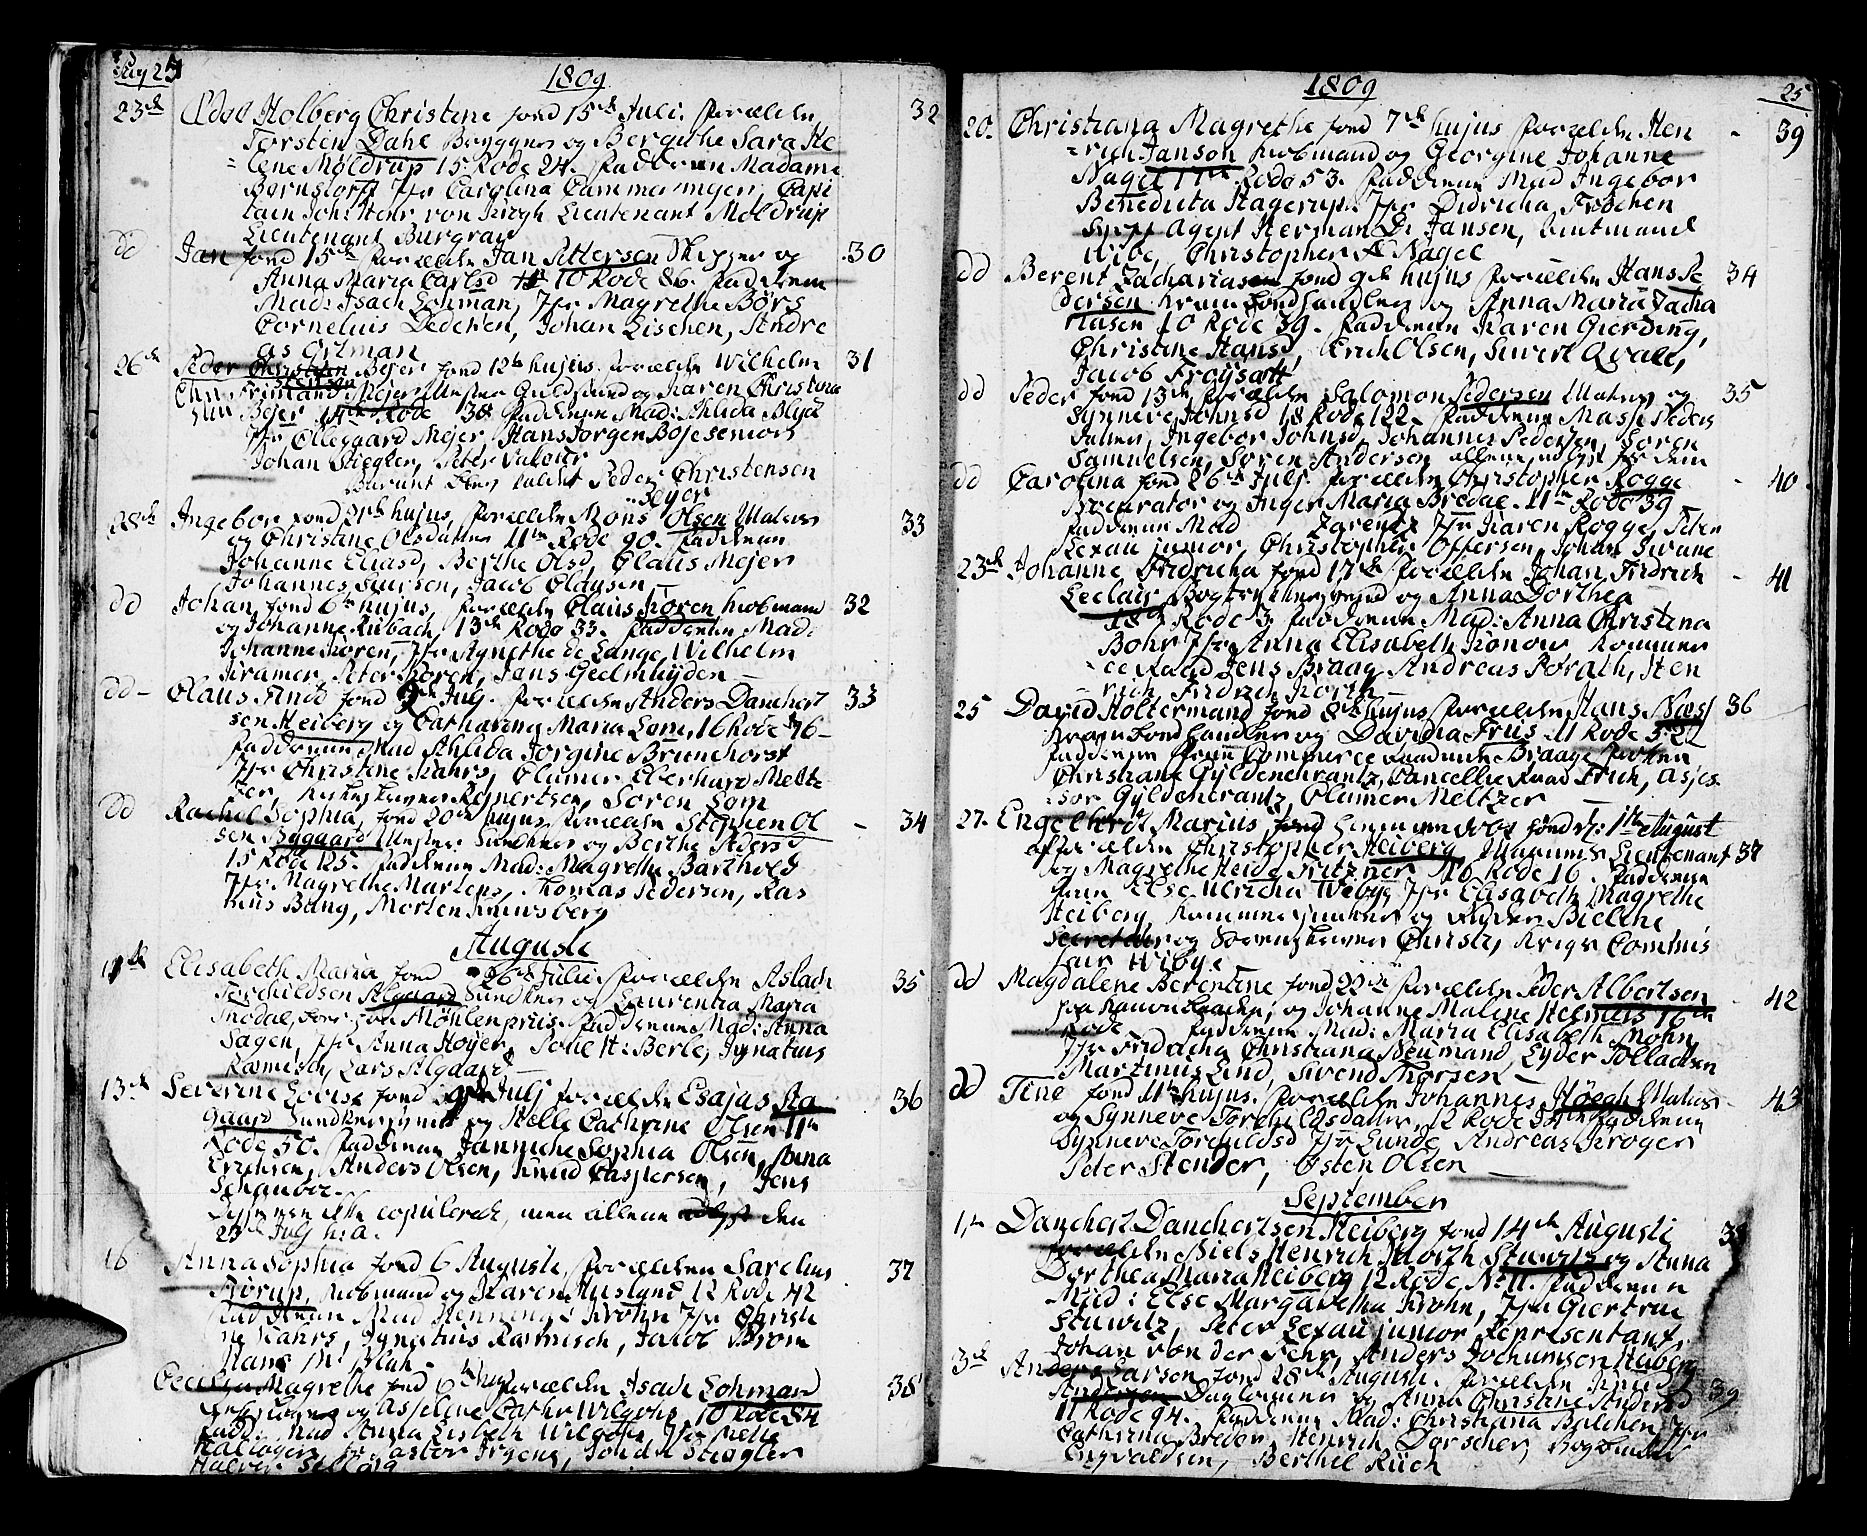 1809
23de Edel Holberg Christine fond 15de Juli. Forældre
Torsten Dahl Brygger og Bergithe Sara He
=lene Møldrup 15 Rode 24. Fadderne Madame
Bornstorff Jfr Carolina Cammermeyer, Capi
tain Joh: von Krogh Lieutenant Møldrup
Lieutenant Burgrav
32
dd Jan fond 15de Forældre Jan Pettersen Skipper og
Anna Maria Carlsd 10 Rode 86. Fadderne
Mad: Isach Lohman, Jfr Magrethe Børs
Cornelius Dedeken, Johan Lischen, Andre
as Ortman
30
26de Peder Christian Bejer fond 12te hujus. Forældre Wilhelm
Mejer Mester Guldsmed og Karen Christina
Bejer Rode 38 Fadderne Mad: Ahlida Blyt
Jfr Ollegaard Mejer, Hans Jørgen Boje senior
Johan Stiegler, Peter Valeur
Barnet blev kaldet Peder Christensen
Bejer
31
28de Ingebor fond 21de hujus, Forældre Mons Olsen Matros
og Christine Olsdatter 11te Rode 90. Fadderne
Johanne Eliasd, Berthe Olsd, Claus Mejer
Johannes Knudsen, Jacob Clausen
33
dd Johan, fond 6te hujus, Forældre Claus Koren Kiøbmand
og Johanne Rubach, 13de Rode 33. Fadderne Mad:
Johanne Koren, Jfr Agnethe de Lange, Wilhelm
Kramer, Peter Koren, Jens Geelmuyden
32
dd - Claus And fond 9de July. Forældre Anders Danchert
sen Heiberg og Catharina Maria Lem, 16 Rode 76
Fadderne Mad Ahlida Jørgine Brunchorst
Jfr Christine Kahrs, Clamer Eberhard Melt
zer, Reinertsen, Søren Lem
33
dd Rachel Sophia, fond 20de hujus, Forældre Stephen Ol
sen Bygaard Mester Snedker og Berthe Pedersd
15 Rode 125. Fadderne Mad: Magrethe Barthold
Jfr Magrethe Martens, Thomas Pedersen, Ras
mus Bang, Morten Knudsberg
34
Augusti
11de Elisabeth Maria fond 26de Julii. Forældre Aslach
Torchildsen Algaard Snedker og Laurentia Maria
Tredal, Møhlenpriis. Fadderne Mad: Anna
Sagen, Jfr Anna Høyer, Sone H: Berle, Ignatius
Ramisch, Lars Algaard
35
13de Severine Lovise fond 9de July Forældre Esajas Ha
gaard Snedkersvend og Helle Cathrine Olsen 11te
Rode 50. Fadderne Janniche Sophia Olsen, Anna
Erichsen, Anders Olsen, Knud Caspersen, Jens
Schaubor.
Disse ere ikke copulerede, men allene udlyst den
23de July h: a.
36
16 Anna Sophia fond 6 Augusti, Forældrene Sarelius
Torup, Kiøbmand og Karen Husland 12 Rode 42
Fadderne Mad Henning Krohn Jfr Christi
ne Kahrs, Ignatius Ramisch, Jacob Brom
Hans M: Blich.
37
Cecilia Magrethe fond 6te Forældre Isach Lohmand
og Asseline Cathr Wilgohs 10 Rode 84
Fadd: Mad Anna Lisbeth Wilgohs, Jfr
Pastor Irgens, Johan Stiegler
38
1809
25
20. Christiana Magrethe fond 7de hujus Forældre Hen
=rich Janson Kiøbmand og Georgine Johanne
Nagel 17de Rode 53. Fadderne Mad Ingebor
Benedicta Hagerup. Jfr Didricha Frøchen
Agent Herman D: Jansen, Amtmand
Wibe, Christopher Nagel
39
dd Berent Zachariasen fond 9de hujus Forældre Hans Pe
dersen Krambodhandler og Anna Maria Zacha
riasen 10 Rode 39. Fadderne Karen Gierding,
Christine Hansd, Erich Olsen, Sivert Qvale,
Jacob Frøysaa
34
dd Peder fond 13de Forældre Salomon Pedersen Matros og
Synneve Johnsd 18 Rode 122. Fadderne Massi Peders
datter, Ingebor Johnsd, Johannes Pedersen, Søren
Samuelsen, Søren Andersen allene udlyst for dem
35
dd Carolina fond 26de July. Forældre Christopher Rogge
Procurator og Inger Maria Bredal. 11te Rode 39
Fadderne Mad Zarentz Jfr Karen Rogge, Peter
Lexau junior, Christopher Offersen, Johan Swane
40
23de Johanne Fridricha fond 17de Forældre Johan Fridrich
Leclair Bogtrykkersvend og Anna Dorthea
18de Rode 3 Fadderne Mad: Anna Christina
Bohr Jfr Anna Elisabeth Konow Kommer
ce Raad Jens Braag Andreas Porath, Hen
rich Fridrich Korth
41
25 David Holtermand fond 8de hujus Forældre Hans Næss
Krambodhandler og Davidia Friis 11 Rode 52
Fadderne Frue Commerceraadinde Braage Frøken
Christiane Gyldenkrantz, Cancellie Raad Frich, Asses
=sor Gyldenkrantz, Clamer Meltzer
36
27. Engelbret Marius hiemmedøbt fond d: 1te August
Forældre Christopher Heiberg Marine Lieutenant
og Magrethe Heide Fritzner 16 Rode 16. Fadderne
Frue Else Ulricha Wibye, Jfr Elisabeth Magrethe
Heiberg, Kammerjunker og Ridder Bielche
Secretair og Sorenskriver Christi, Krigs Commis
sair Wibye
37
dd Magdalene Berentine fond 22de Forældre Peder Albertsen
og Johanne Malene Helmers 16de
Rode Fadderne Mad: Maria Elisabeth Mohn
Jfr Fridricha Christiana Neumand Eyder Tolladsen
Martinus Lind, Sivend Thorsen
42
dd Tine fond 11te hujus. Forældre Johannes Høegh Matros
og Synneve Torchildsdatter, 12 Rode Fadderne
Synneve Torchildsd Jfr Lunde, Andreas Krøger
Peter Stender, Østen Olsen
43
September
1te Danchert Danchertsen Heiberg fond 14de Augusti
Forældre Niels Henrich Stuwitz og Anna
Dorthea Maria Heiberg 12 Rode No 11. Fadderne
Mad: Else Margaretha Krohn, Jfr Giertrue
Stuwitz, Peter Lexau junior, Representant,
Johan von der Fehr, Anders Jochumsen Heiberg
38
3de Anders Larsen fond 28de Augusti. Forældre Knud
Andersen Dagleyer og Anna Christine Andersd
11 Rode 94. Fadderne Mad: Christiana Balchen, Jfr
Cathrina Breder, Henrich Dørscher, Bogbinder
Engvaldsen, Berthel Rüch
39